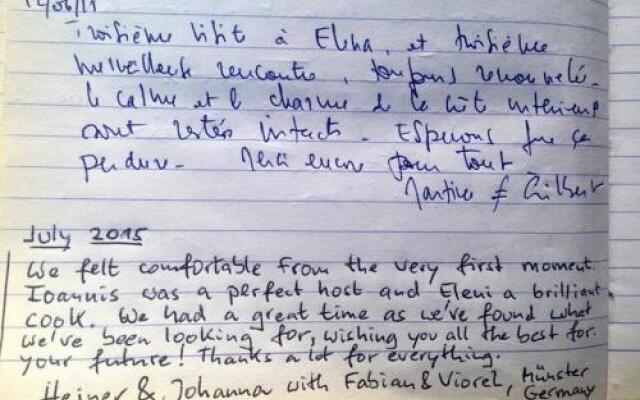 Troisième visit à Elena, et troisième
merveilleuse rencontre, toujours renouvelé.
le calme et le charme de la cour intérieure
sont restés intacts. Espérons que ça
perdure. Merci encore pour tout
Martine & Gilbert
July 2015
We felt comfortable from the very first moment.
Ioannis was a perfect host and Eleni a brilliant
cook. We had a great time as we've found what
we've been looking for, wishing you all the best for
your future! Thanks a lot for everything.
Heiner & Johanna with Fabian & Viorel, Münster
Germany